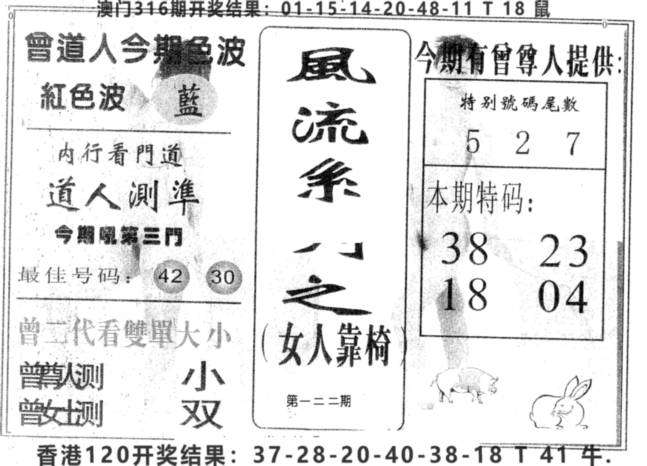 澳门316期开奖结果：01-15-14-20-48-11 T 18 鼠
曾道人今期色波
紅色波 藍
内行看門道
道人測準
今期吼第三門
最佳号码： 42 30
曾二代看雙單大小
曾尊人测 小
曾女士测 双
風
流
系
之
（女人靠椅）
第一二二期
今期有曾尊人提供:
特别號碼尾數
5 2 7
本期特码：
38 23
18 04
香港120开奖结果：37-28-20-40-38-18 T 41 牛.